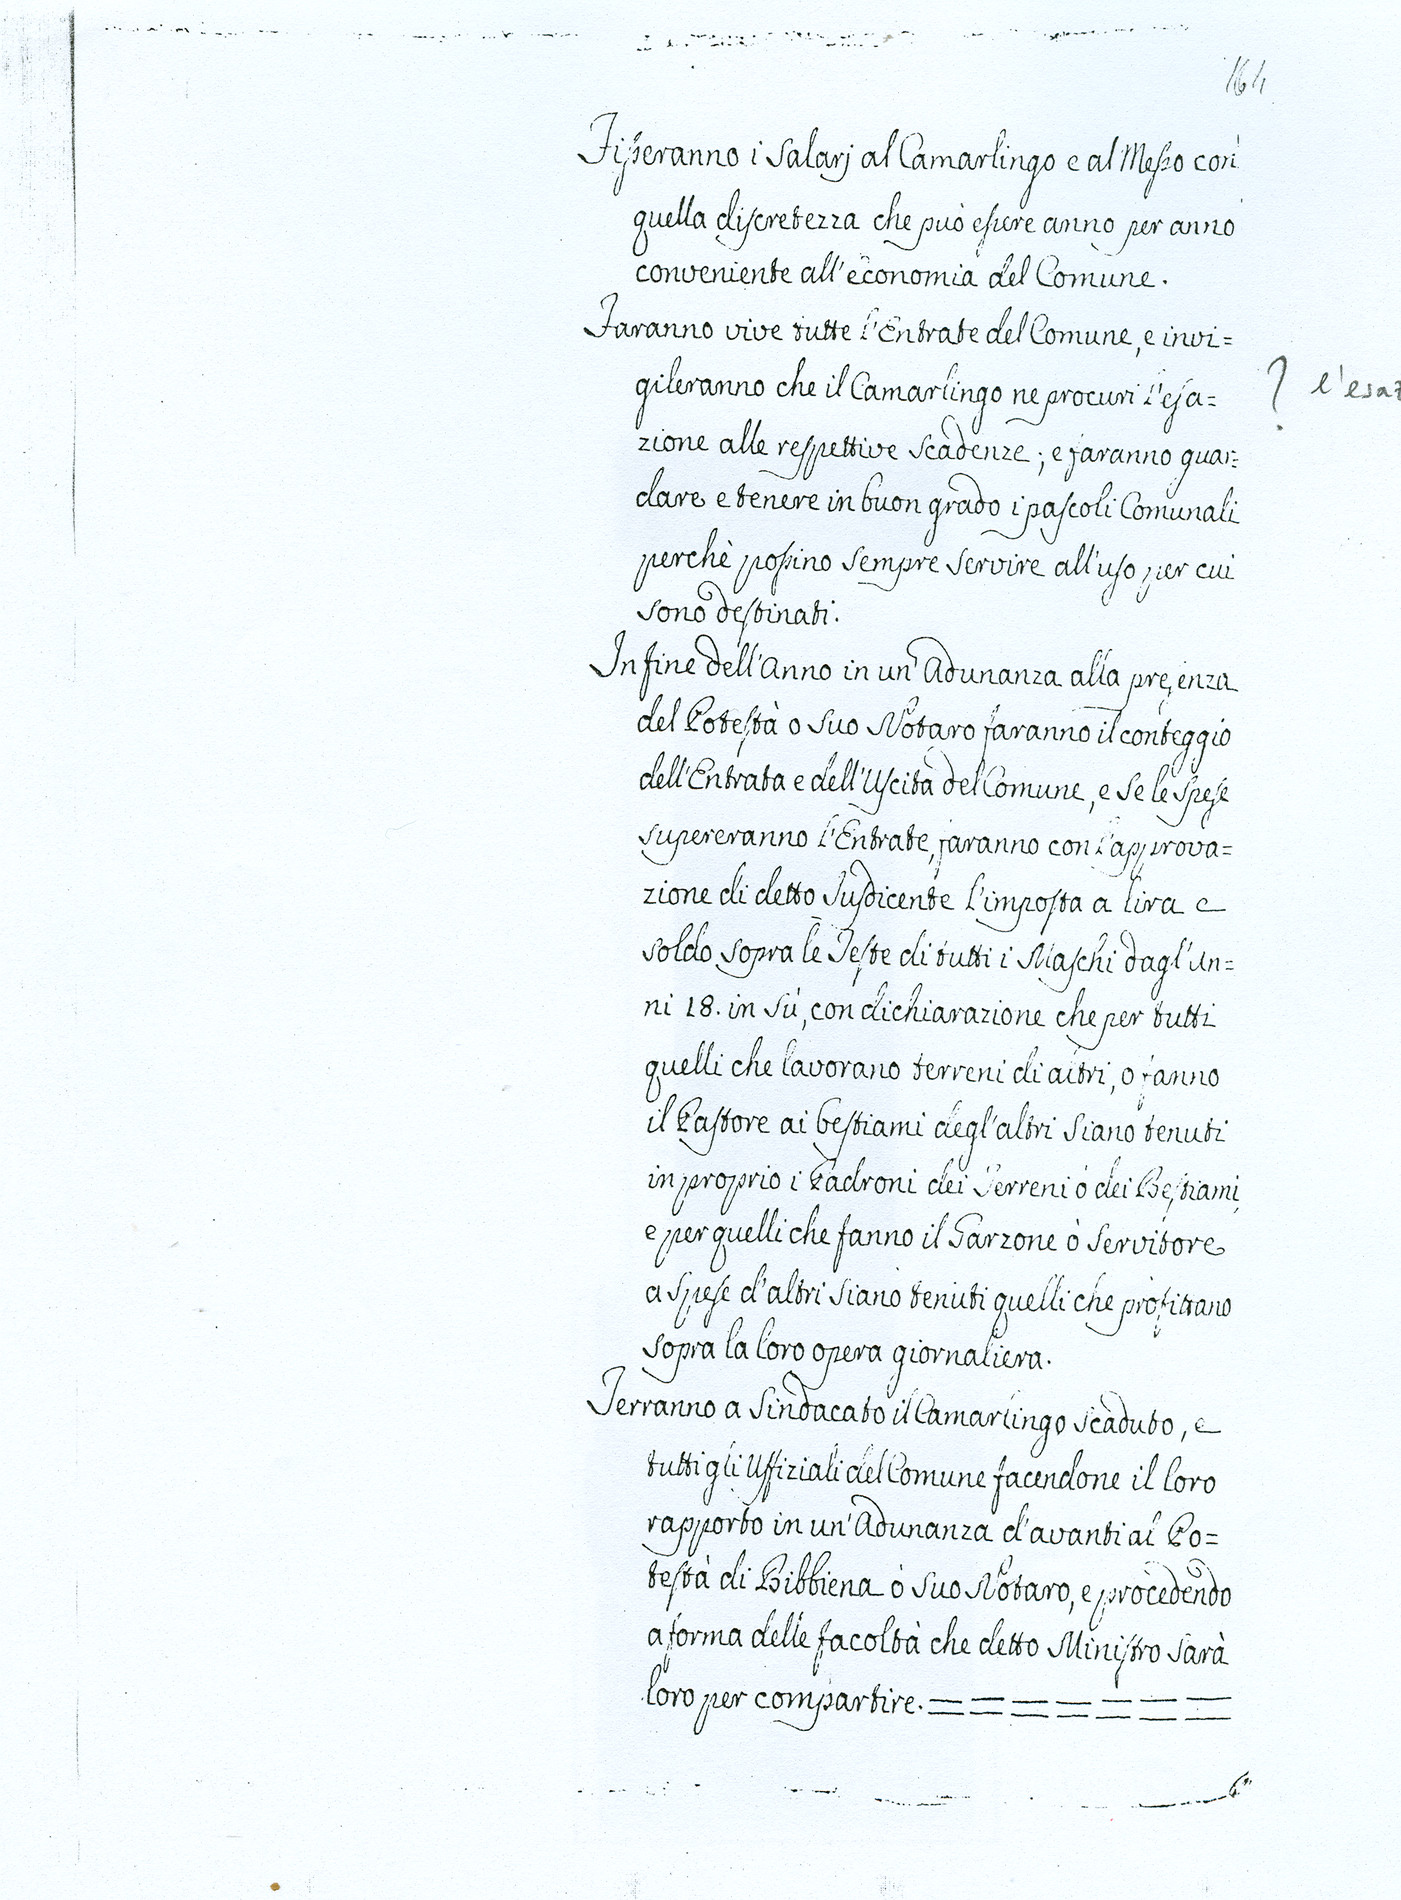 164
Fisseranno i Salarj al Camarlingo e al Messo con
quella discretezza che può essere anno per anno
conveniente all'economia del Comune.
Faranno vive tutte l'Entrate del Comune, e invi=
gileranno che il Camarlingo ne procuri l'esa=
? l'esaz
zione alle respettive scadenze; e faranno guar=
dare e tenere in buon grado i pascoli Comunali
perchè possino sempre servire all'uso per cui
sono destinati.
In fine dell'Anno in un'Adunanza alla presenza
del Potestà o suo Notaro faranno il conteggio
dell'Entrata e dell'Uscita del Comune, e se le spese
supereranno l'Entrate, faranno con l'approva=
zione di detto Jusdicente l'imposta a lira e
soldo sopra le Teste di tutti i Maschi dagl'An=
ni 18. in sù, con dichiarazione che per tutti
quelli che lavorano terreni di altri, o fanno
il Pastore ai bestiami degl'altri siano tenuti
in proprio i Padroni dei Terreni ò dei Bestiami,
e per quelli che fanno il Garzone ò Servitore
a spese d'altri siano tenuti quelli che profittano
sopra la loro opera giornaliera.
Terranno a Sindacato il Camarlingo scaduto, e
tutti gli Uffiziali del Comune facendone il loro
rapporto in un'Adunanza d'avanti al Po=
testà di Bibbiena ò suo Notaro, e procedendo
a forma delle facoltà che detto Ministro sarà
loro per compartire.